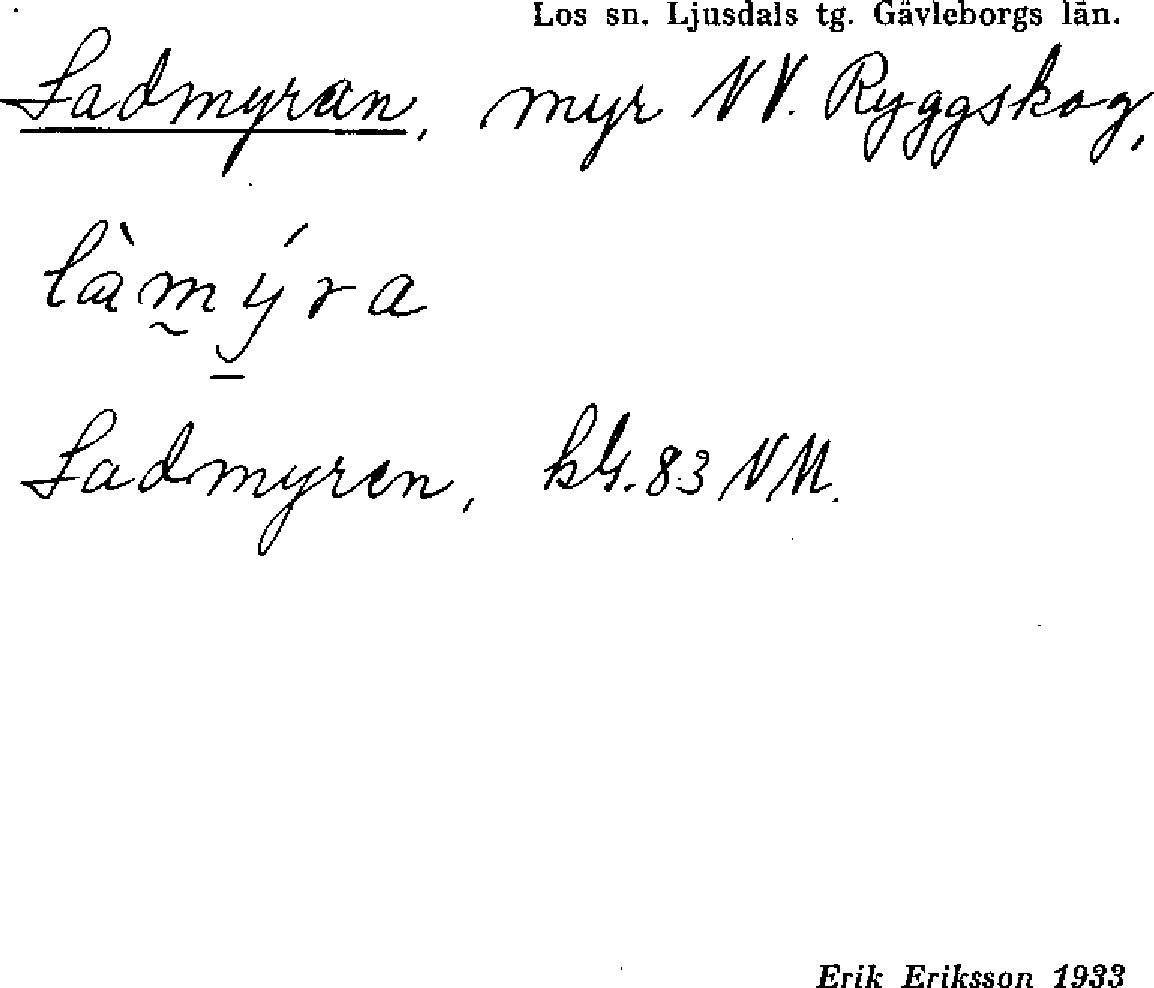 Los sn. Ljusdals tg. Gävleborgs län.
Ladmyran, myr NV. Ryggskog,
làmýra
Ladmyren, 83 NM.
Erik Eriksson 1933